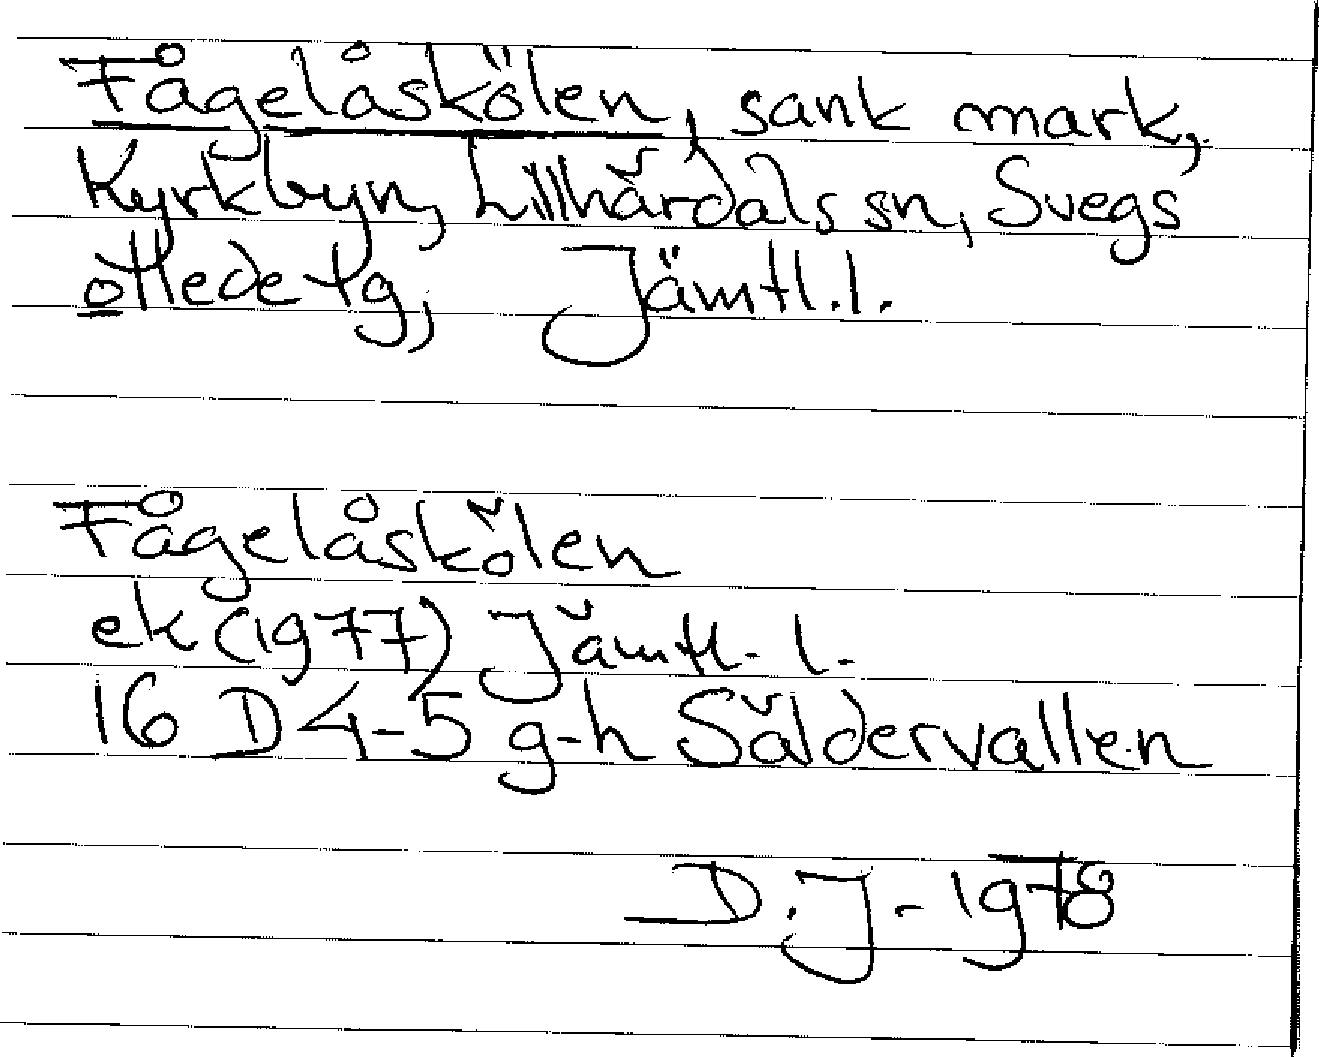 Fågelåskölen, sank mark,
Kyrkbyn, Lillhärdals sn, Svegs
ottedetg, Jämtl.l.
Fågelåskölen
ek (1977) Jämtl. l.
16 D 4-5 g-h Säldervallen
D.J - 1978